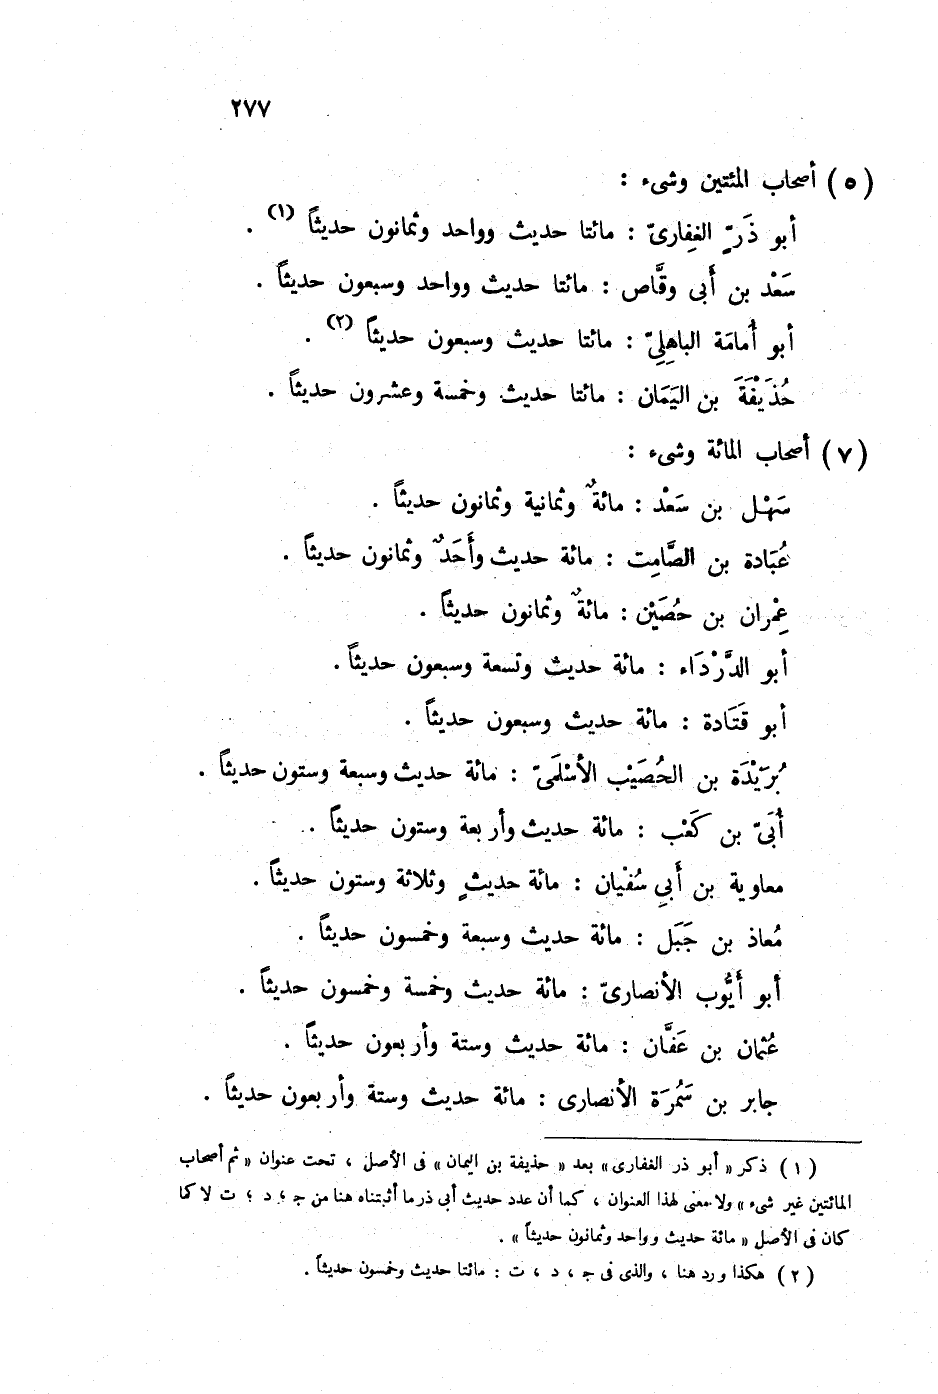 ٢٧٧
(٥) أصحاب المئتين وشىء :
أبو ذَرٍّ الغِفارىّ : مائتا حديث وواحد وثمانون حديثاً (١) .
سَعْد بن أَبى وقَّاص : مائتا حديث وواحد وسبعون حديثاً .
أبو أُمامَة الباهِلِىّ : مائتا حديث وسبعون حديثاً (٢) .
حُذَيْفَةَ بن اليَمَان : مائتا حديث وخمسة وعشرون حديثاً .
(٧) أصحاب المائة وشىء :
سَهْل بن سَعْد : مائةٌ وثمانية وثمانون حديثاً .
عُبَادة بن الصَّامِت : مائة حديث وأَحَدٌ وثمانون حديثاً .
عِمْران بن حُصَيْن : مائةٌ وثمانون حديثاً .
أبو الدَّرْدَاء : مائة حديث وتسعة وسبعون حديثاً .
أبو قَتَادة : مائة حديث وسبعون حديثاً .
بُرَيْدَة بن الحُصَيْب الأَسْلَمىّ : مائة حديث وسبعة وستون حديثاً .
أُبَىّ بن كَعْب : مائة حديث وأربعة وستون حديثاً .
معاوية بن أَبىِ سُفْيان : مائة حديثٍ وثلاثة وستون حديثاً .
مُعاذ بن جَبَل : مائة حديث وسبعة وخمسون حديثاً .
أبو أَيُّوب الأنصارىّ : مائة حديث وخمسة وخمسون حديثاً .
عُثمان بن عَفَّان : مائة حديث وستة وأربعون حديثاً .
جابر بن سَمُرَة الأنصارى : مائة حديث وستة وأربعون حديثاً .
(١) ذكر « أبو ذر الغفارى » بعد « حذيفة بن اليمان » فى الأصل ، تحت عنوان « ثم أصحاب
المائتين غير شىء » ولا معنى لهذا العنوان ، كما أن عدد حديث أبى ذر ما أثبتناه هنا من جـ ؛ د ؛ ت لا كما
كان فى الأصل « مائة حديث وواحد وثمانون حديثاً » .
(٢) هكذا ورد هنا ، والذى فى جـ ، د ، ت : مائتا حديث وخمسون حديثاً .